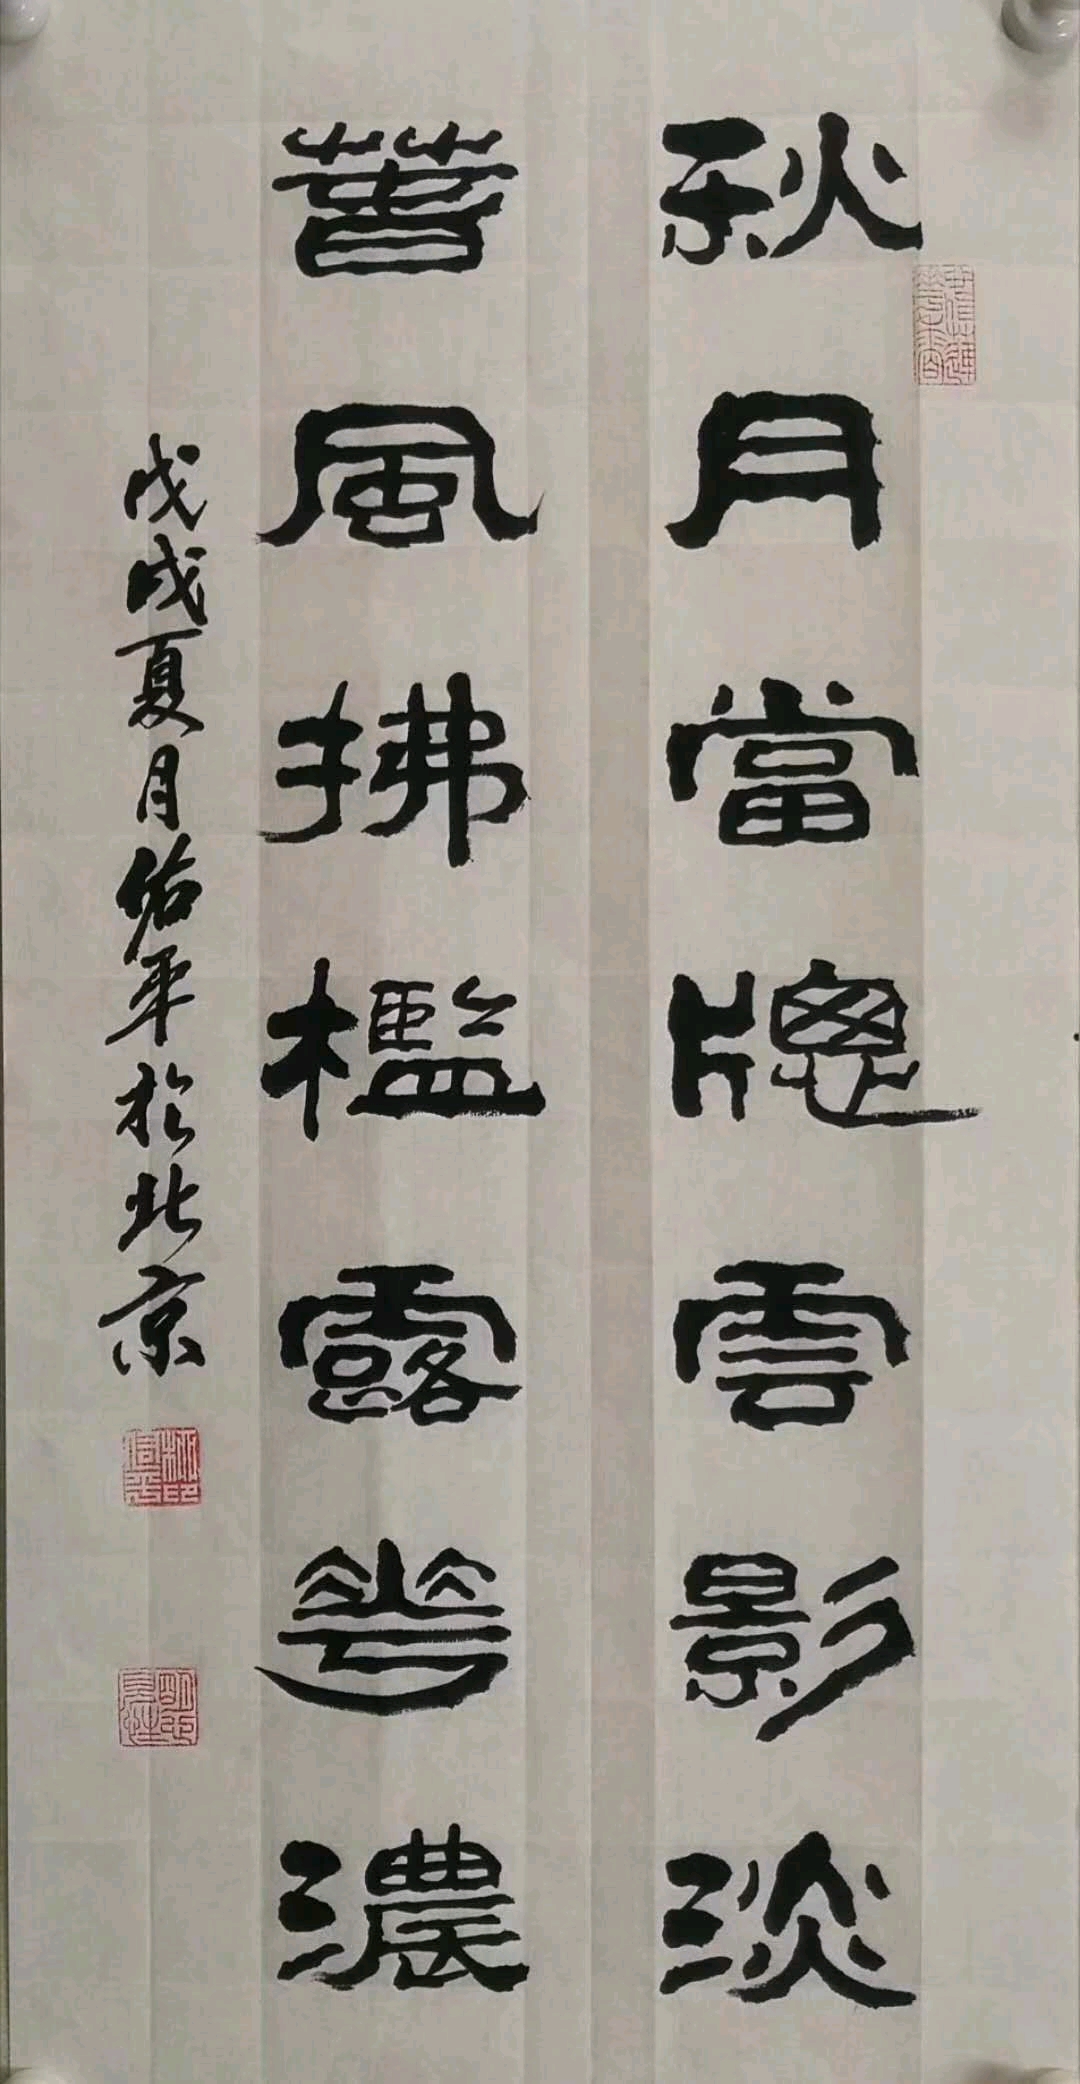 秋月當牕雲影淡
萅風拂檻露華濃
戊戌夏月佑平於北京